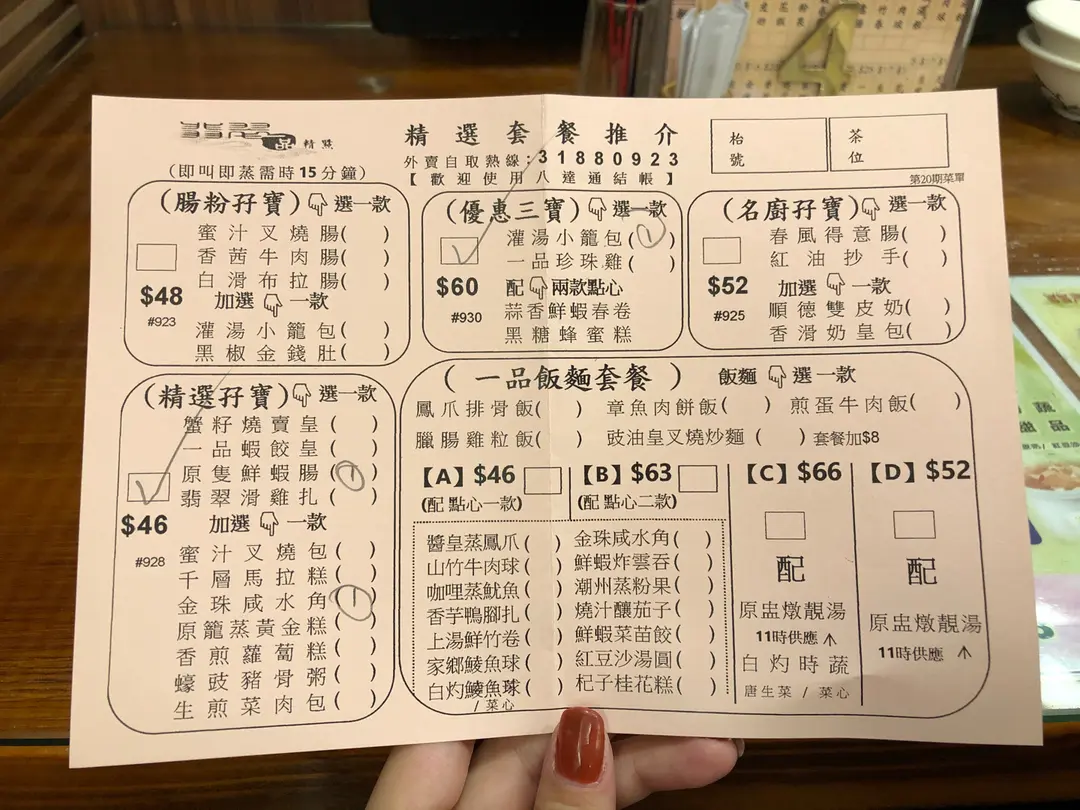 品 精點
精選套餐推介
外賣自取熱線:31880923
【歡迎使用八達通結帳】
枱號
茶位
(即叫即蒸需時15分鐘)
第20期菜單
(腸粉孖寶) 選一款
蜜汁叉燒腸( )
香茜牛肉腸( )
白滑布拉腸( )
$48 加選 一款
#923
灌湯小籠包( )
黑椒金錢肚( )
(優惠三寶) 選一款
灌湯小籠包( )
一品珍珠雞( )
$60 配 兩款點心
#930
蒜香鮮蝦春卷
黑糖蜂蜜糕
(名廚孖寶) 選一款
春風得意腸( )
紅油抄手( )
$52 加選 一款
#925
順德雙皮奶( )
香滑奶皇包( )
(精選孖寶) 選一款
蟹籽燒賣皇( )
一品蝦餃皇( )
原隻鮮蝦腸(1)
翡翠滑雞扎( )
$46 加選 一款
#928
蜜汁叉燒包( )
千層馬拉糕( )
金珠咸水角(1)
原籠蒸黃金糕( )
香煎蘿蔔糕( )
蠔豉豬骨粥( )
生煎菜肉包( )
(一品飯麵套餐) 飯麵 選一款
鳳爪排骨飯( ) 章魚肉餅飯( ) 煎蛋牛肉飯( )
臘腸雞粒飯( ) 豉油皇叉燒炒麵( )套餐加$8
【A】$46
(配 點心一款)
【B】$63
(配 點心二款)
醬皇蒸鳳爪( ) 金珠咸水角( )
山竹牛肉球( ) 鮮蝦炸雲吞( )
咖哩蒸魷魚( ) 潮州蒸粉果( )
香芋鴨腳扎( ) 燒汁釀茄子( )
上湯鮮竹卷( ) 鮮蝦菜苗餃( )
家鄉鯪魚球( ) 紅豆沙湯圓( )
白灼鯪魚球( ) 杞子桂花糕( )
/ 菜心
【C】$66
配
原盅燉靚湯
11時供應
白灼時蔬
唐生菜 / 菜心
【D】$52
配
原盅燉靚湯
11時供應